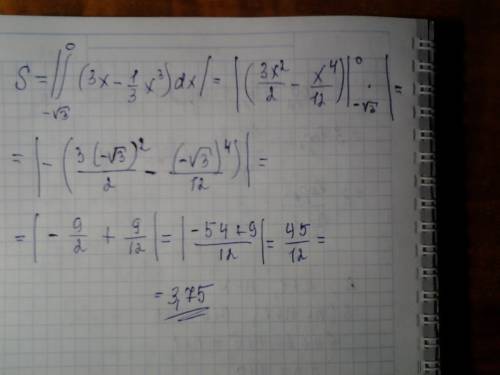 S = |∫_{-√3}^{0} (3x - 1/3 x³) dx| = |(3x²/2 - x⁴/12)|_{-√3}^{0}| =
= |-(3(-√3)²/2 - (-√3)⁴/12)| =
= |-9/2 + 9/12| = |(-54+9)/12| = 45/12 =
= 3,75